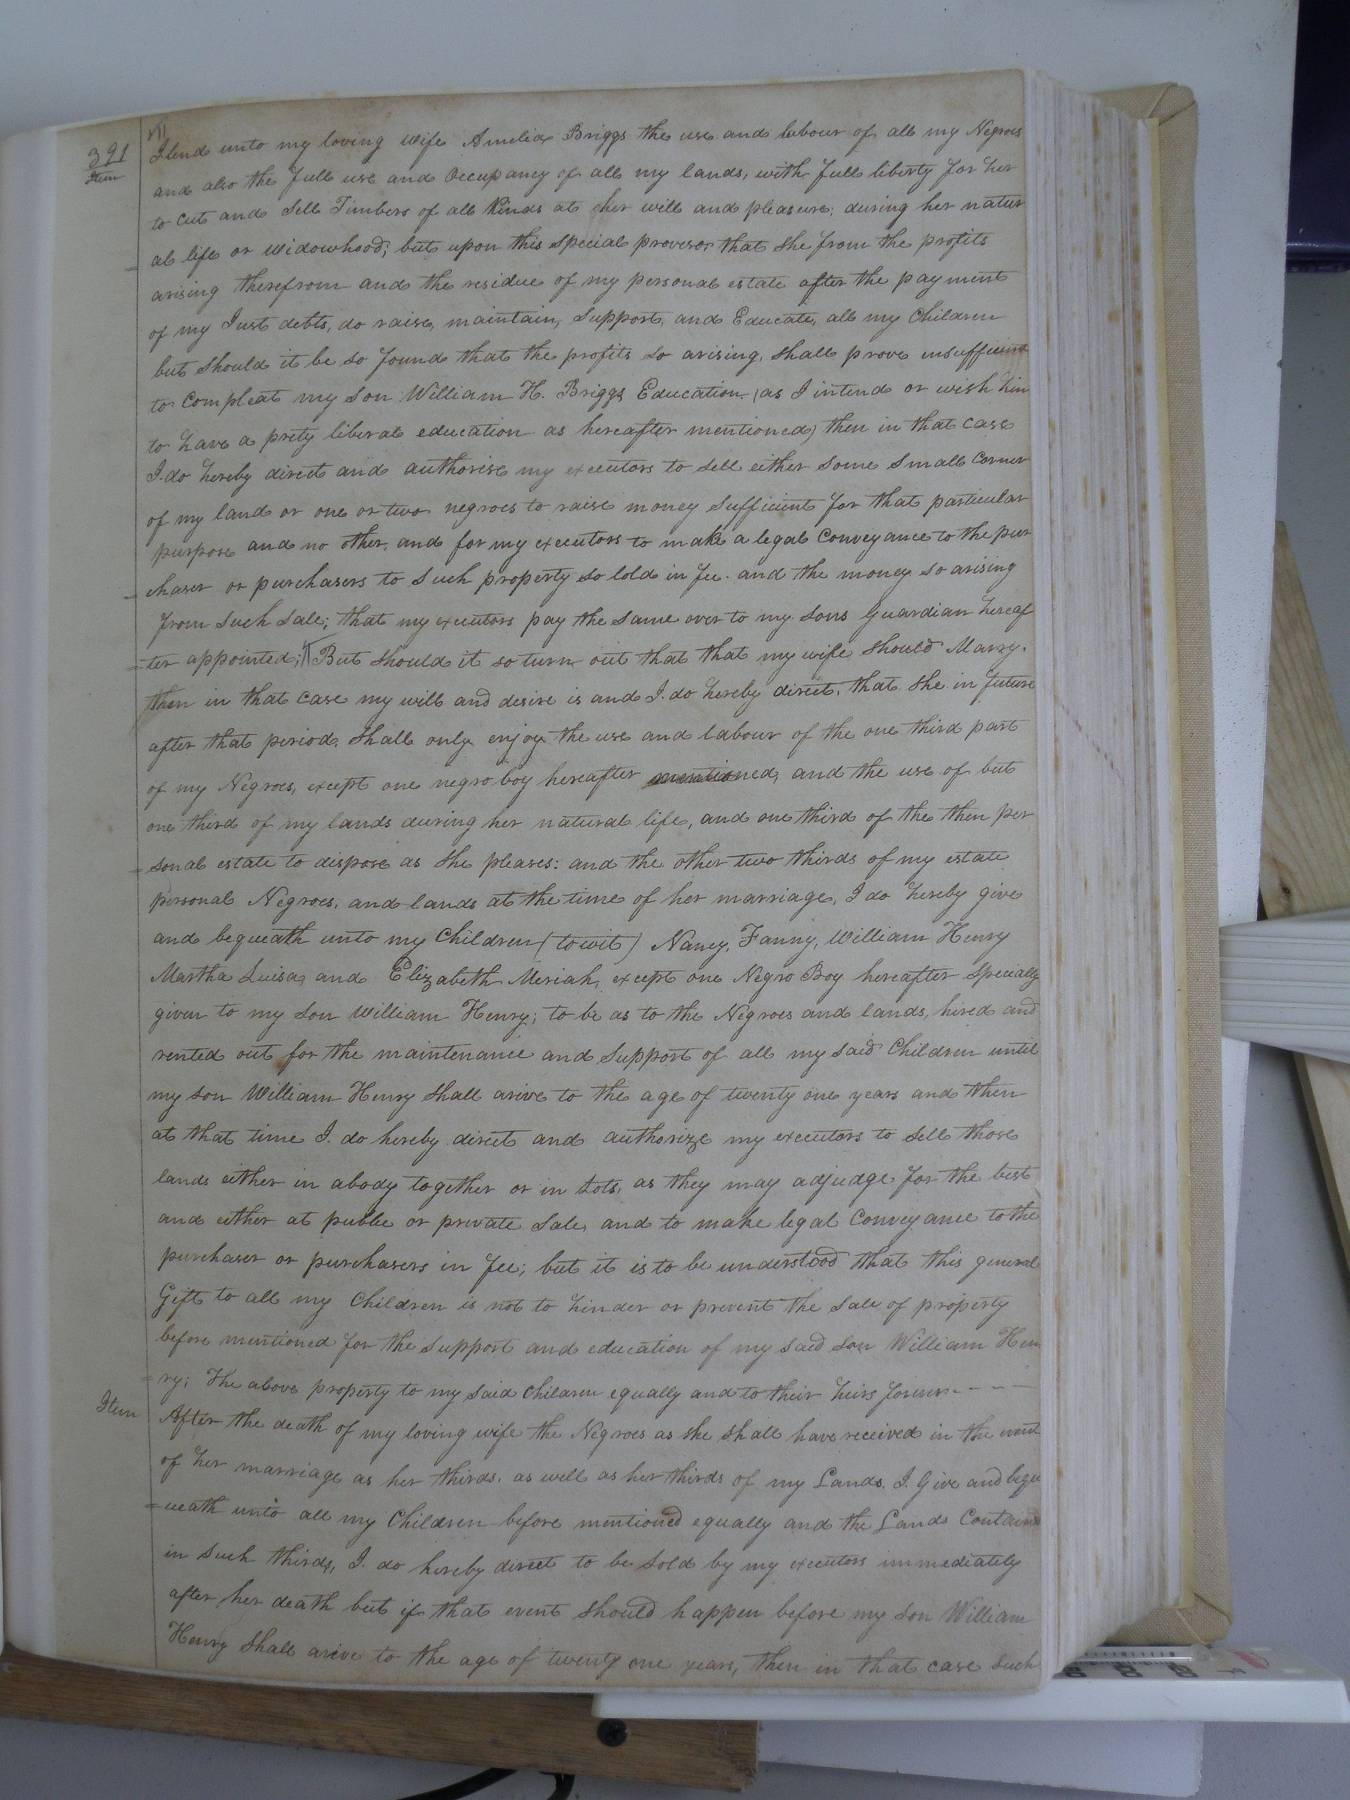 391
Item
I lend unto my loving wife Amelia Briggs the use and labour of all my Negroes
and also the full use and Occupancy of all my lands, with full liberty for her
to cut and Sell Timbers of all Kinds at her will and pleasure; during her natur
-al life or widowhood; but upon this special proviso that she from the profits
arising therefrom and the residue of my personal estate after the payment
of my Just debts, do raise, maintain, Support, and Educate, all my Children
but should it be so found that the profits so arising, shall prove insufficient
to Compleat my Son William H. Briggs Education (as I intend or wish him
to have a prety liberal education as hereafter mentioned) then in that case
I do hereby direct and authorise my executors to sell either Some Small Corner
of my land or one or two negroes to raise money Sufficient for that particular
purpose and no other, and for my executors to make a legal Conveyance to the pur
-chaser or purchasers to Such property so sold in fee. and the money so arising
from Such Sale; that my executors pay the Same over to my Sons Guardian hereaf
-ter appointed; But should it so turn out that that my wife should Marry.
then in that case my will and desire is and I do hereby direct, that She in future
after that period, Shall only enjoy the use and labour of the one third part
of my Negroes, except one negro boy hereafter mentioned, and the use of but
one third of my lands during her natural life, and one third of the then per
-sonal estate to dispose as She pleases: and the other two thirds of my estate
personal Negroes, and lands at the time of her marriage, I do hereby give
and bequeath unto my Children (to wit) Nancy, Fanny, William Henry
Martha Luisa, and Elizabeth Meriah, except one Negro Boy hereafter Specially
given to my Son William Henry; to be as to the Negroes and lands, hired and
rented out for the maintenance and Support of all my said Children until
my Son William Henry Shall arive to the age of twenty one years and then
at that time I do hereby direct and authorize my executors to Sell those
lands either in a body together or in Lots, as they may adjudge for the best
and either at public or private Sale, and to make legal Conveyance to the
purchaser or purchasers in fee; but it is to be understood that this general
Gift to all my Children is not to hinder or prevent the Sale of property
before mentioned for the Support and education of my said Son William Hen
-ry; The above property to my Said Children equally and to their heirs forever - - -
Item After the death of my loving wife the Negroes as she shall have received in the event
of her marriage as her thirds, as well as her thirds of my Lands, I Give and beqe
=ueath unto all my Children before mentioned equally and the Lands Contained
in Such thirds, I do hereby direct to be Sold by my executors immediately
after her death but if that event Should happen before my Son William
Henry Shall arive to the age of twenty one years, then in that case Such